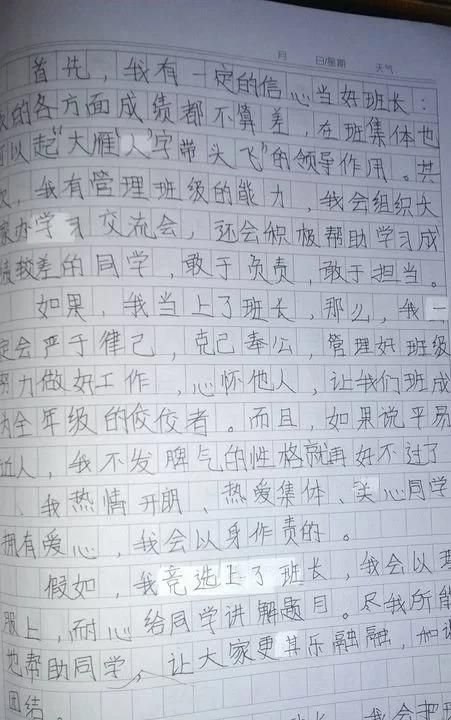 月 日/星期 天气
首先，我有一定的信心当好班长：
我的各方面成绩都不算差，在班集体也
可以起"大雁'人'字带头飞"的领导作用。其
次，我有管理班级的能力，我会组织大
家办学习交流会，还会积极帮助学习成
绩较差的同学，敢于负责，敢于担当。
如果，我当上了班长，那么，我一
定会严于律己，克己奉公，管理好班级
努力做好工作，心怀他人，让我们班成
为全年级的佼佼者。而且，如果说平易
近人，我不发脾气的性格就再好不过了
、我热情开朗、热爱集体、关心同学
拥有爱心，我会以身作责的。
假如，我竞选上了班长，我会以理
服上，耐心给同学讲解题目。尽我所能
地帮助同学，让大家更其乐融融，加
团结。
班长，我会把班